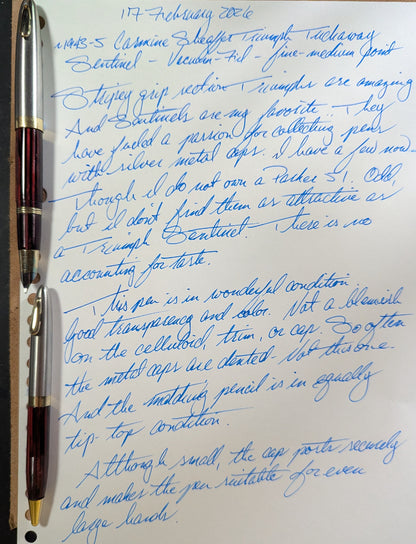 17 February 2026
~1943-5 Carmine Sheaffer Triumph Tuckaway
Sentinel - Vacuum-Fil - fine-medium point
Stripey grip section. Triumphs are amazing
And Sentinels are my favorite. They
have fueled a passion for collecting pens
with silver metal caps. I have a few now -
though I do not own a Parker 51. Odd,
but I don't find them as attractive as
a Triumph Sentinel. There is no
accounting for taste.
This pen is in wonderful condition.
Good transparency and color. Not a blemish
on the celluloid, trim, or cap. So often
the metal caps are dented. Not this one.
And the matching pencil is in equally
tip-top condition.
Although small, the cap posts securely
and makes the pen suitable for even
large hands.